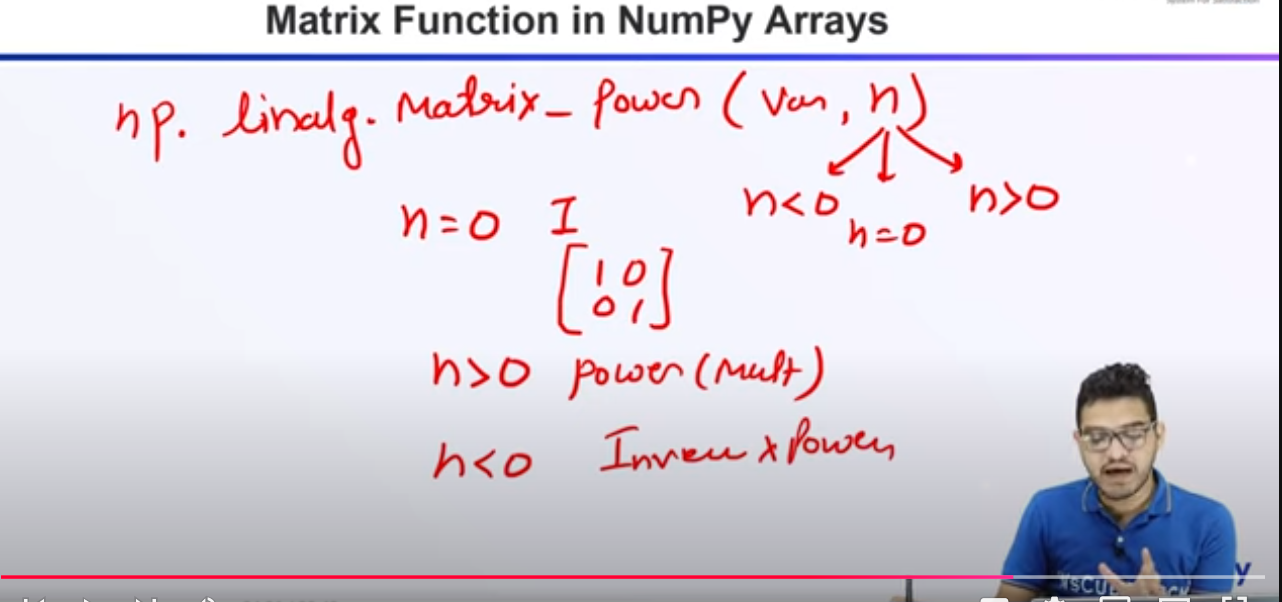 Matrix Function in NumPy Arrays
np. linalg. Matrix_Power (Var, n)
n<0 n=0 n>0
n=0 I
[1 0
0 1]
n>0 Power (Mult)
n<0 Inverse x Power